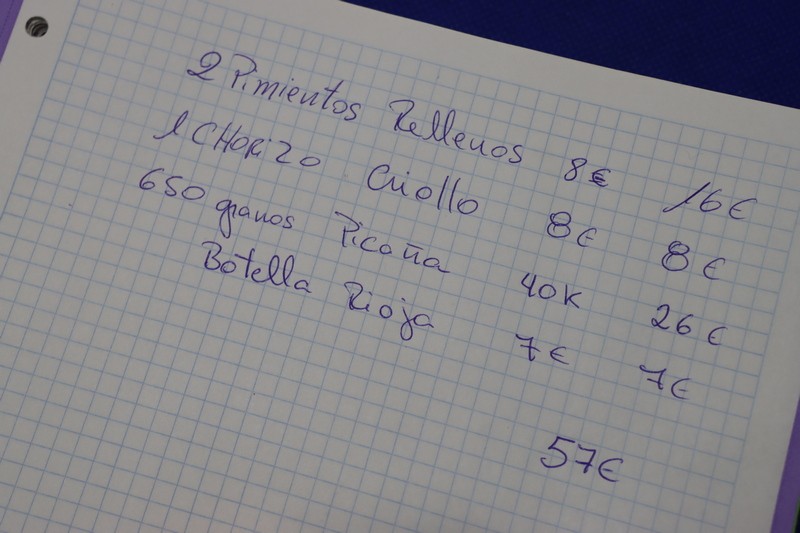 2 Pimientos Rellenos 8€ 16€
1 CHORIZO Criollo 8€ 8€
650 gramos Picaña 40K 26€
Botella Rioja 7€ 7€
57€